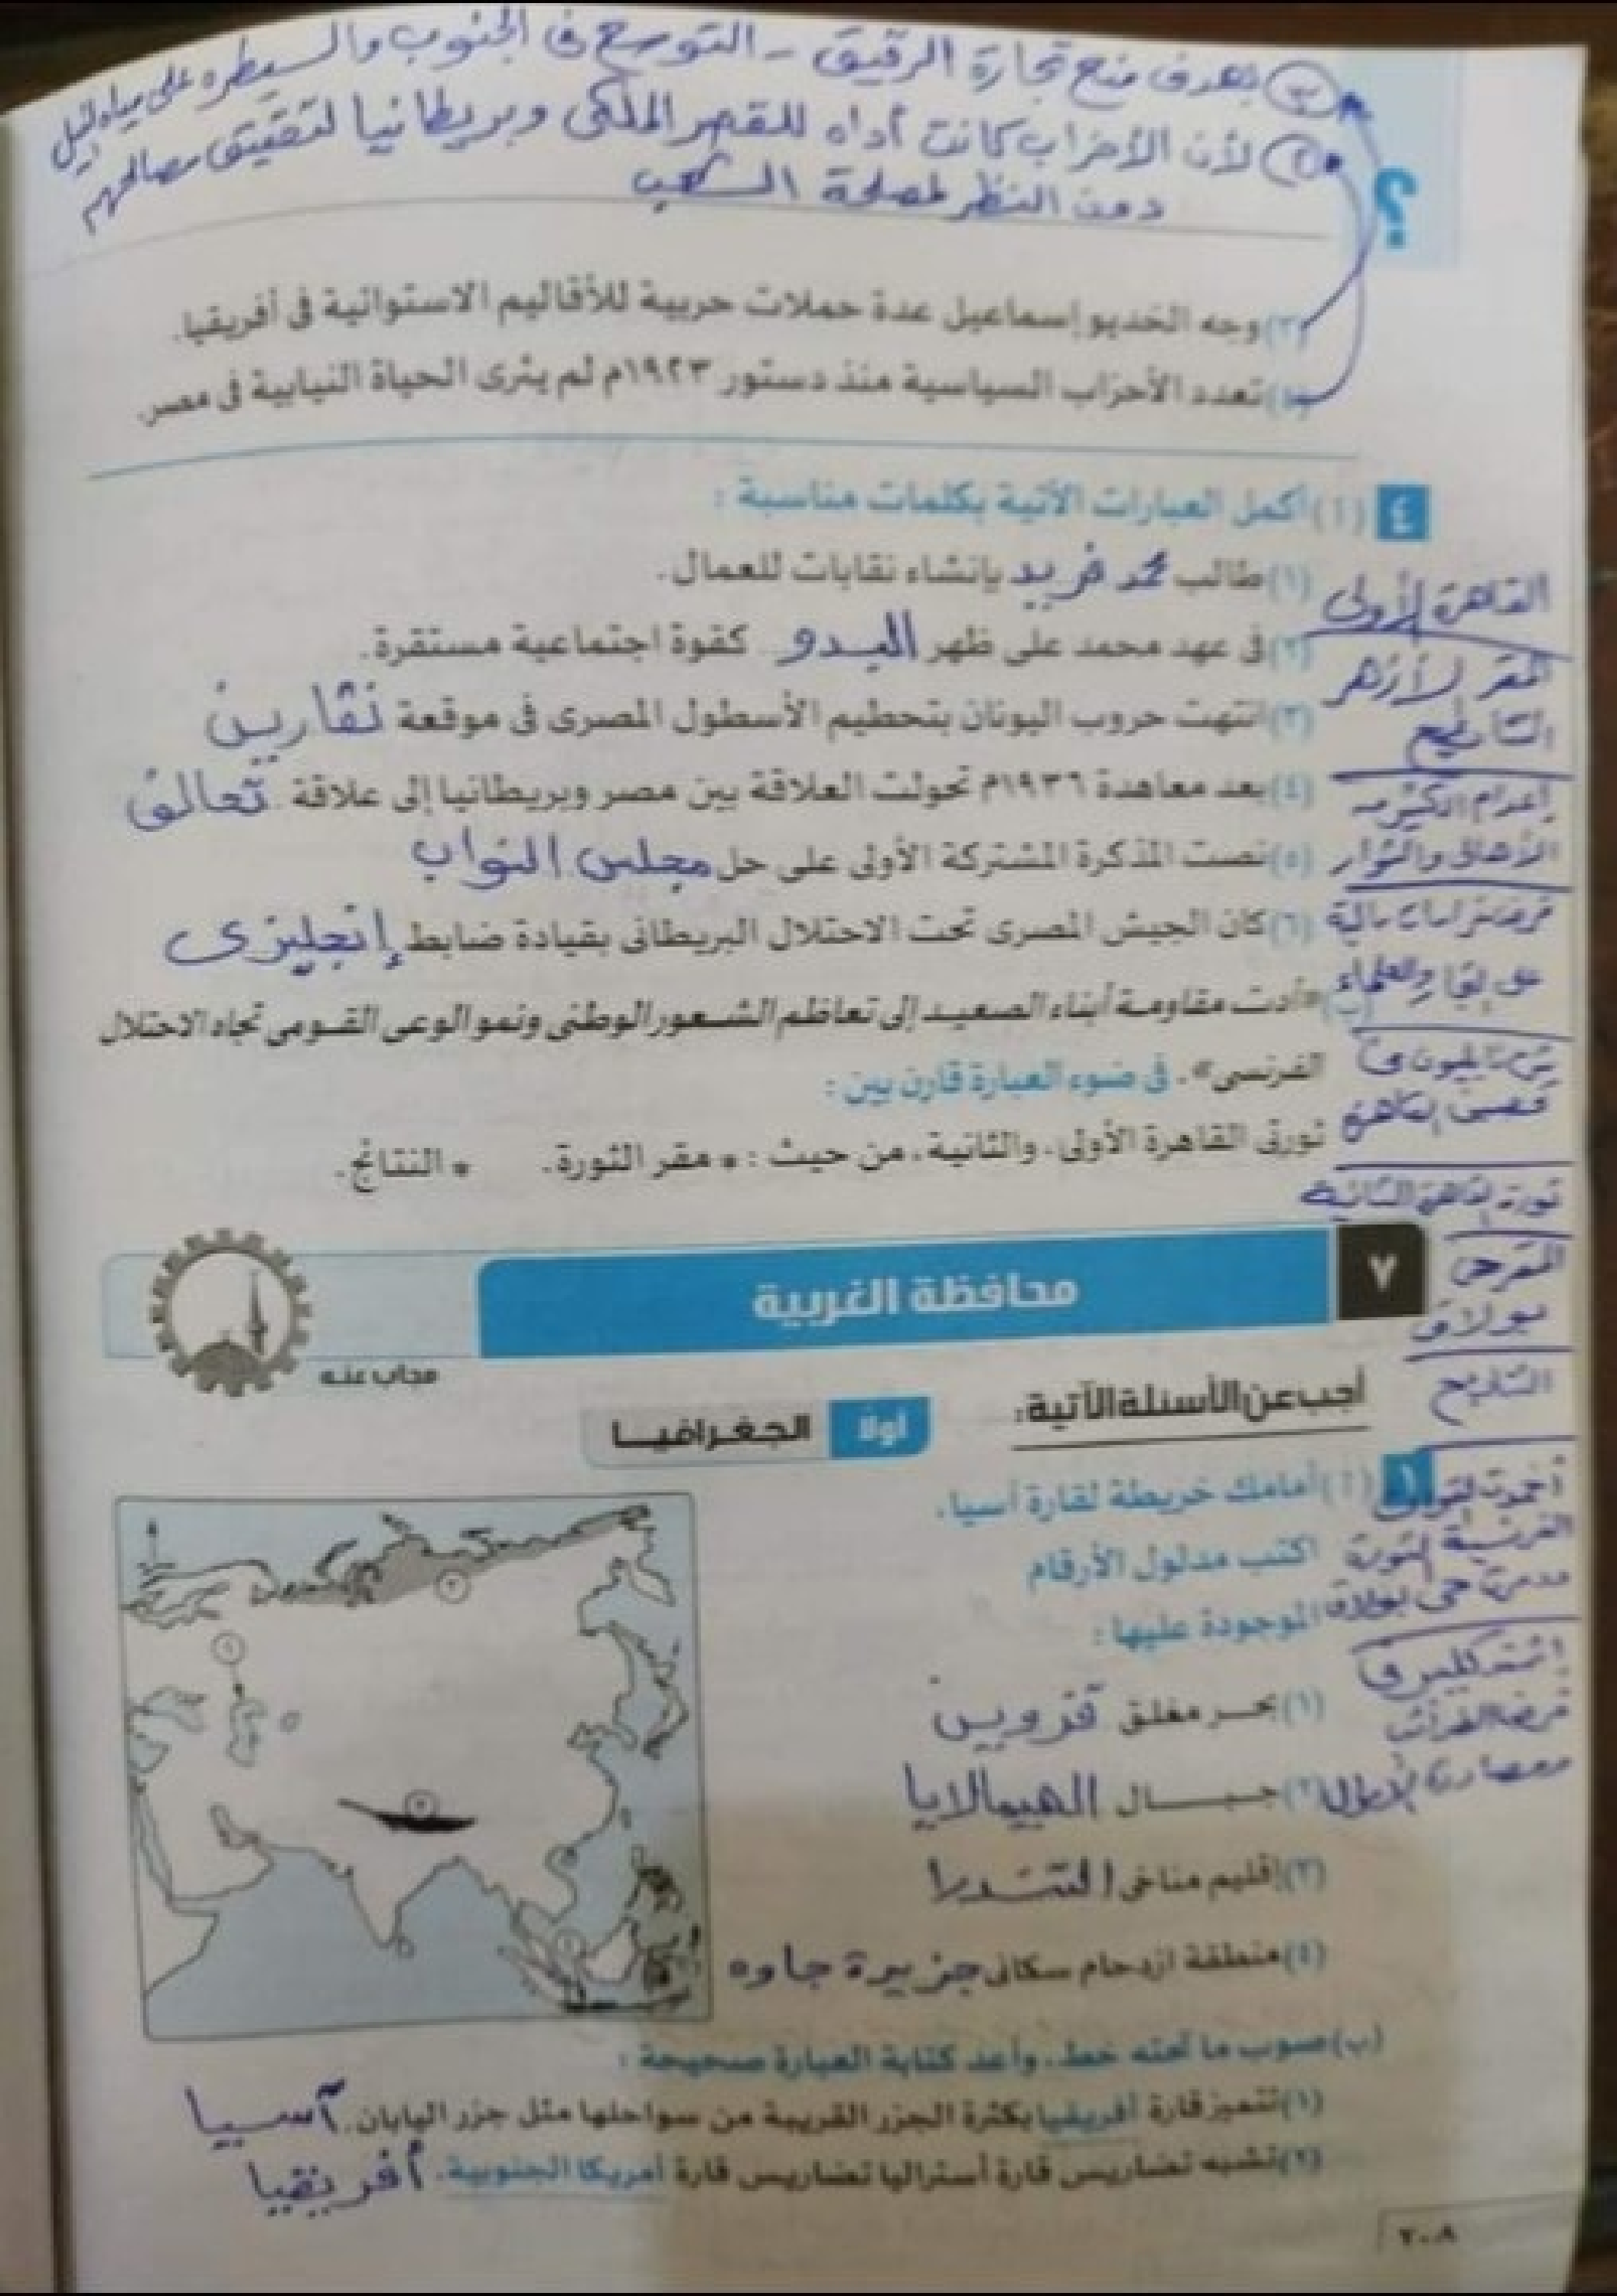 (٣) بهدف منع تجارة الرقيق - التوسع فى الجنوب والسيطره على مياه النيل
(٢) لأن الأحزاب كانت أداه للقصر الملكى وبريطانيا لتحقيق مصالحهم
دون النظر لمصلحة الشعب
؟
(٣) وجه الخديو إسماعيل عدة حملات حربية للأقاليم الاستوائية فى أفريقيا.
تعدد الأحزاب السياسية منذ دستور ١٩٢٣م لم يثرى الحياة النيابية فى مصر.
٤ (أ) أكمل العبارات الآتية بكلمات مناسبة :
(١) طالب محمد فريد بإنشاء نقابات للعمال.
(٢) فى عهد محمد على ظهر البدو كقوة اجتماعية مستقرة.
(٣) انتهت حروب اليونان بتحطيم الأسطول المصرى فى موقعة نفارين
(٤) بعد معاهدة ١٩٣٦م تحولت العلاقة بين مصر وبريطانيا إلى علاقة تحالف
(٥) نصت المذكرة المشتركة الأولى على حل مجلس النواب
(٦) كان الجيش المصرى تحت الاحتلال البريطانى بقيادة ضابط إنجليزى
(ب) «أدت مقاومة أبناء الصعيد إلى تعاظم الشعور الوطنى ونمو الوعى القومى تجاه الاحتلال
الفرنسى». فى ضوء العبارة قارن بين :
ثورتى القاهرة الأولى، والثانية، من حيث : * مقر الثورة. * النتائج.
القاهرة الأولى
المقر الأزهر
النتائج
إعدام الكثير من
الأهالى والثوار
فرض غرامات مالية
على التجار والعلماء
ثورة القاهرة الثانية
المقر حى
بولاق
النتائج
أخمدت القوات
الفرنسية الثورة
مدمرة حى بولاق
اشتد كليبر فى
فرض الضرائب
ومصادرة الأموال
٧ محافظة الغربية
مجاب عنه
أجب عن الأسئلة الآتية:
أولاً الجغرافيا
١ (أ) أمامك خريطة لقارة آسيا.
اكتب مدلول الأرقام
الموجودة عليها :
(١) بحر مغلق قزوين
(٢) جبال الهيمالايا
(٣) إقليم مناخى التندرا
(٤) منطقة ازدحام سكانى جزيرة جاوه
١
٢
٣
٤
(ب) صوب ما تحته خط، وأعد كتابة العبارة صحيحة :
(١) تتميز قارة أفريقيا بكثرة الجزر القريبة من سواحلها مثل جزر اليابان. آسيا
(٢) تشبه تضاريس قارة أستراليا تضاريس قارة أمريكا الجنوبية. أفريقيا
٢٠٨